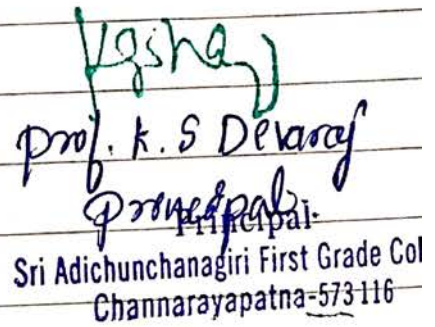 Prof. K. S Devaraj
Principal
Principal
Sri Adichunchanagiri First Grade Col
Channarayapatna-573 116